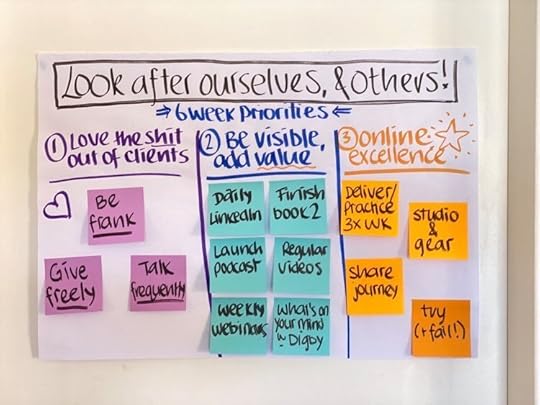 Look after ourselves, & others!
⇒ 6 week priorities ⇐
① Love the shit
out of clients
Be
frank
Give
freely
Talk
frequently
② Be visible,
add value
Daily
LinkedIn
Finish
book 2
Launch
podcast
Regular
videos
Weekly
webinars
What's on
your mind
w Digby
③ online
excellence
Deliver/
Practice
3x wk
studio
&
gear
share
journey
try
(+ fail!)